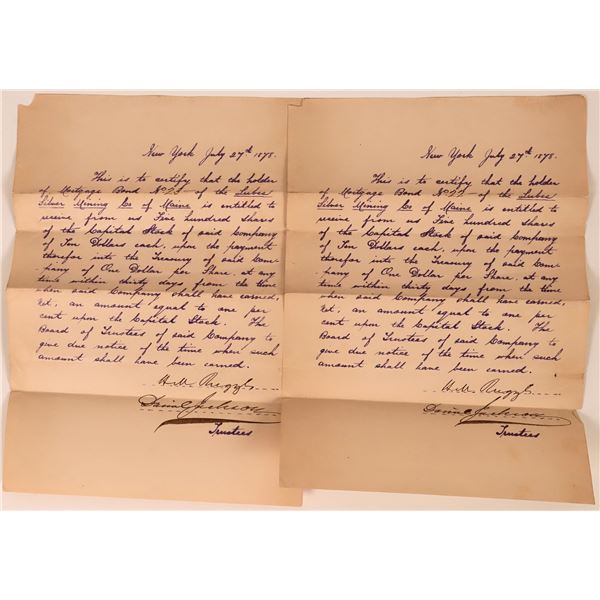 New York July 27th 1878.
This is to certify that the holder
of Mortgage Bond No 23 of the Lubec
Silver Mining Co of Maine is entitled to
receive from us Five hundred shares
of the Capital Stock of said Company
of Ten Dollars each, upon the payment
therefor into the Treasury of said Com-
pany of One Dollar per Share, at any
time within thirty days from the time
when said Company shall have earned,
net, an amount equal to one per
cent upon the Capital Stock. The
Board of Trustees of said Company to
give due notice of the time when such
amount shall have been earned.
H. M.
Jackson
Trustees
New York July 27th 1878.
This is to certify that the holder
of Mortgage Bond No of the Lubec
Silver Mining Co of Maine is entitled to
receive from us Five hundred shares
of the Capital Stock of said Company
of Ten Dollars each, upon the payment
therefor into the Treasury of said Com-
pany of One Dollar per Share, at any
time within thirty days from the time
when said Company shall have earned,
net, an amount equal to one per
cent upon the Capital Stock. The
Board of Trustees of said Company to
give due notice of the time when such
amount shall have been earned.
H. M.
Jackson
Trustees